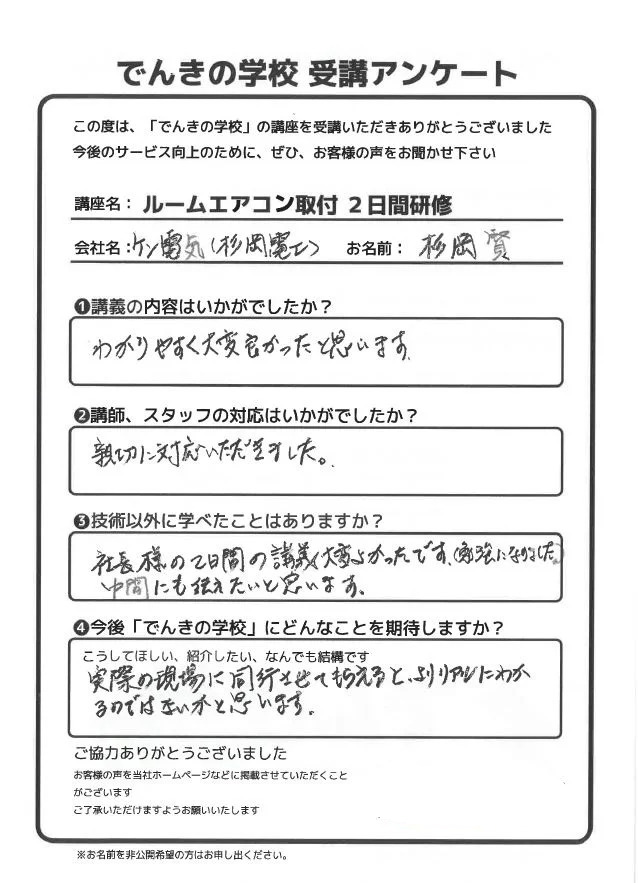 でんきの学校 受講アンケート
この度は、「でんきの学校」の講座を受講いただきありがとうございました
今後のサービス向上のために、ぜひ、お客様の声をお聞かせ下さい
講座名： ルームエアコン取付 ２日間研修
会社名：ケン電気(杉岡電工) お名前： 杉岡 賢
❶講義の内容はいかがでしたか？
わかりやすく大変良かったと思います。
❷講師、スタッフの対応はいかがでしたか？
親切に対応いただきました。
❸技術以外に学べたことはありますか？
社長様の2日間の講義、大変よかったです。(勉強になりました。)
中間にも伝えたいと思います。
❹今後「でんきの学校」にどんなことを期待しますか？
こうしてほしい、紹介したい、なんでも結構です
実際の現場に同行させてもらえると、よりリアルにわか
るのではないかと思います。
ご協力ありがとうございました
お客様の声を当社ホームページなどに掲載させていただくこと
がございます
ご了承いただけますようお願いいたします
※お名前を非公開希望の方はお申し出ください。